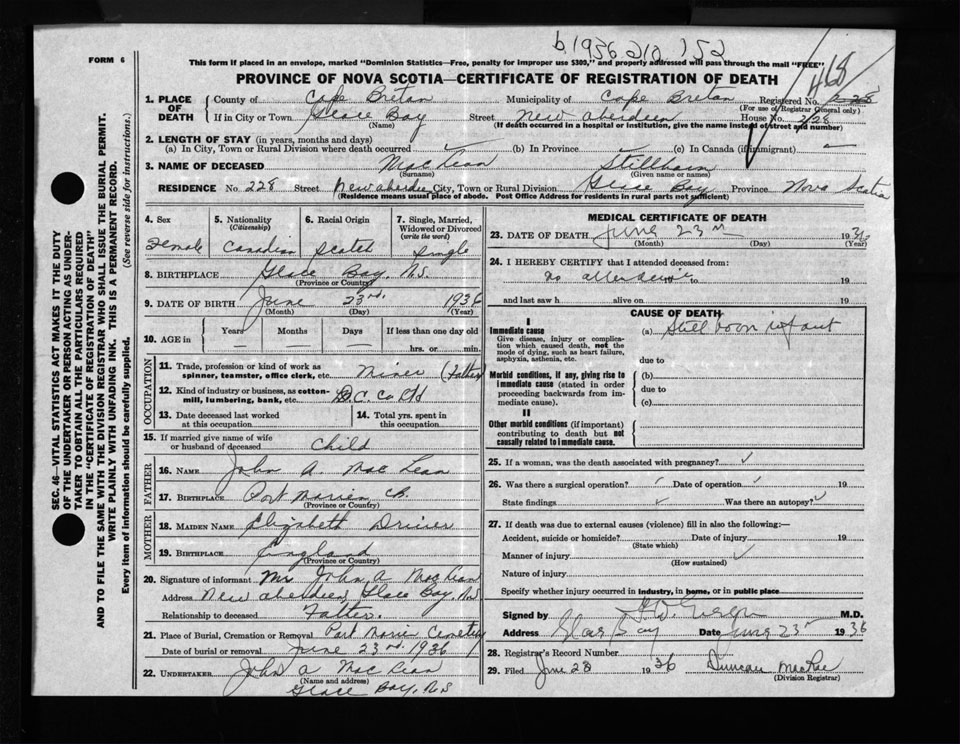 b.1936 210 752
FORM 6
This form if placed in an envelope, marked "Dominion Statistics—Free, penalty for improper use $300," and properly addressed will pass through the mail "FREE"
468
PROVINCE OF NOVA SCOTIA—CERTIFICATE OF REGISTRATION OF DEATH
1. PLACE OF DEATH
County of Cape Breton Municipality of Cape Breton Registered No.
(For use of Registrar General only)
If in City or Town Glace Bay Street New Aberdeen House No. 228
(Name) (If death occurred in a hospital or institution, give the name instead of street and number)
2. LENGTH OF STAY (in years, months and days)
(a) In City, Town or Rural Division where death occurred (b) In Province (c) In Canada (if immigrant)
3. NAME OF DECEASED Mac Lean Stillborn
(Surname) (Given name or names)
RESIDENCE No. 228 Street New Aberdeen City, Town or Rural Division Glace Bay Province Nova Scotia
(Residence means usual place of abode. Post Office Address for residents in rural parts not sufficient)
4. Sex 5. Nationality (Citizenship) 6. Racial Origin 7. Single, Married, Widowed or Divorced (write the word)
Female Canadian Scotch Single
8. BIRTHPLACE Glace Bay, N.S.
(Province or Country)
9. DATE OF BIRTH June 23rd. 1936
(Month) (Day) (Year)
10. AGE in Years Months Days If less than one day old
hrs. or min.
OCCUPATION
11. Trade, profession or kind of work as spinner, teamster, office clerk, etc. Miner (Father)
12. Kind of industry or business, as cotton-mill, lumbering, bank, etc. D. C. Co Ltd
13. Date deceased last worked at this occupation 14. Total yrs. spent in this occupation
15. If married give name of wife or husband of deceased Child
FATHER
16. NAME John A. Mac Lean
17. BIRTHPLACE Port Morien CB.
(Province or Country)
MOTHER
18. MAIDEN NAME Elizabeth Driver
19. BIRTHPLACE England
(Province or Country)
20. Signature of informant Mr John A Mac Lean
Address New Aberdeen, Glace Bay, N.S
Relationship to deceased Father.
21. Place of Burial, Cremation or Removal Port Morien Cemetery
Date of burial or removal June 23rd. 1936
22. UNDERTAKER John A Mac Lean
(Name and address)
Glace Bay, N.S
MEDICAL CERTIFICATE OF DEATH
23. DATE OF DEATH June 23rd 1936
(Month) (Day) (Year)
24. I HEREBY CERTIFY that I attended deceased from:
no attendance to 19
and last saw h alive on 19
CAUSE OF DEATH
I
Immediate cause (a) Still born infant
Give disease, injury or complication which caused death, not the mode of dying, such as heart failure, asphyxia, asthenia, etc.
due to
Morbid conditions, if any, giving rise to immediate cause (stated in order proceeding backwards from immediate cause). (b)
due to
(c)
II
Other morbid conditions (if important) contributing to death but not causally related to immediate cause.
25. If a woman, was the death associated with pregnancy? ✓
26. Was there a surgical operation? ✓ Date of operation ✓ 19
State findings ✓ Was there an autopsy? ✓
27. If death was due to external causes (violence) fill in also the following:—
Accident, suicide or homicide? Date of injury 19
(State which)
Manner of injury ✓
(How sustained)
Nature of injury
Specify whether injury occurred in industry, in home, or in public place
Signed by M.D.
Address Glace Bay Date June 23rd 1936
28. Registrar's Record Number
29. Filed June 28 1936 Duncan MacRae
(Division Registrar)
SEC. 46—VITAL STATISTICS ACT MAKES IT THE DUTY
OF THE UNDERTAKER OR PERSON ACTING AS UNDER-
TAKER TO OBTAIN ALL THE PARTICULARS REQUIRED
IN THE "CERTIFICATE OF REGISTRATION OF DEATH"
AND TO FILE THE SAME WITH THE DIVISION REGISTRAR WHO SHALL ISSUE THE BURIAL PERMIT.
WRITE PLAINLY WITH UNFADING INK. THIS IS A PERMANENT RECORD.
Every item of information should be carefully supplied. (See reverse side for instructions.)